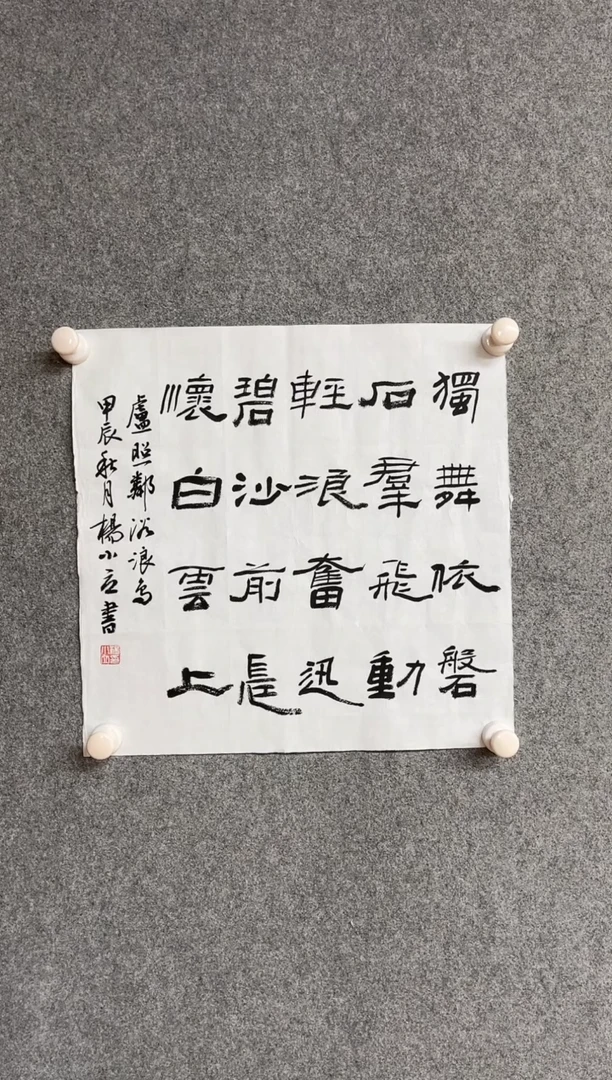 獨舞依磐
石羣飛動
輕浪奮迅
碧沙前長
懷白雲上
盧照鄰浴浪鳥
甲辰秋月楊小書